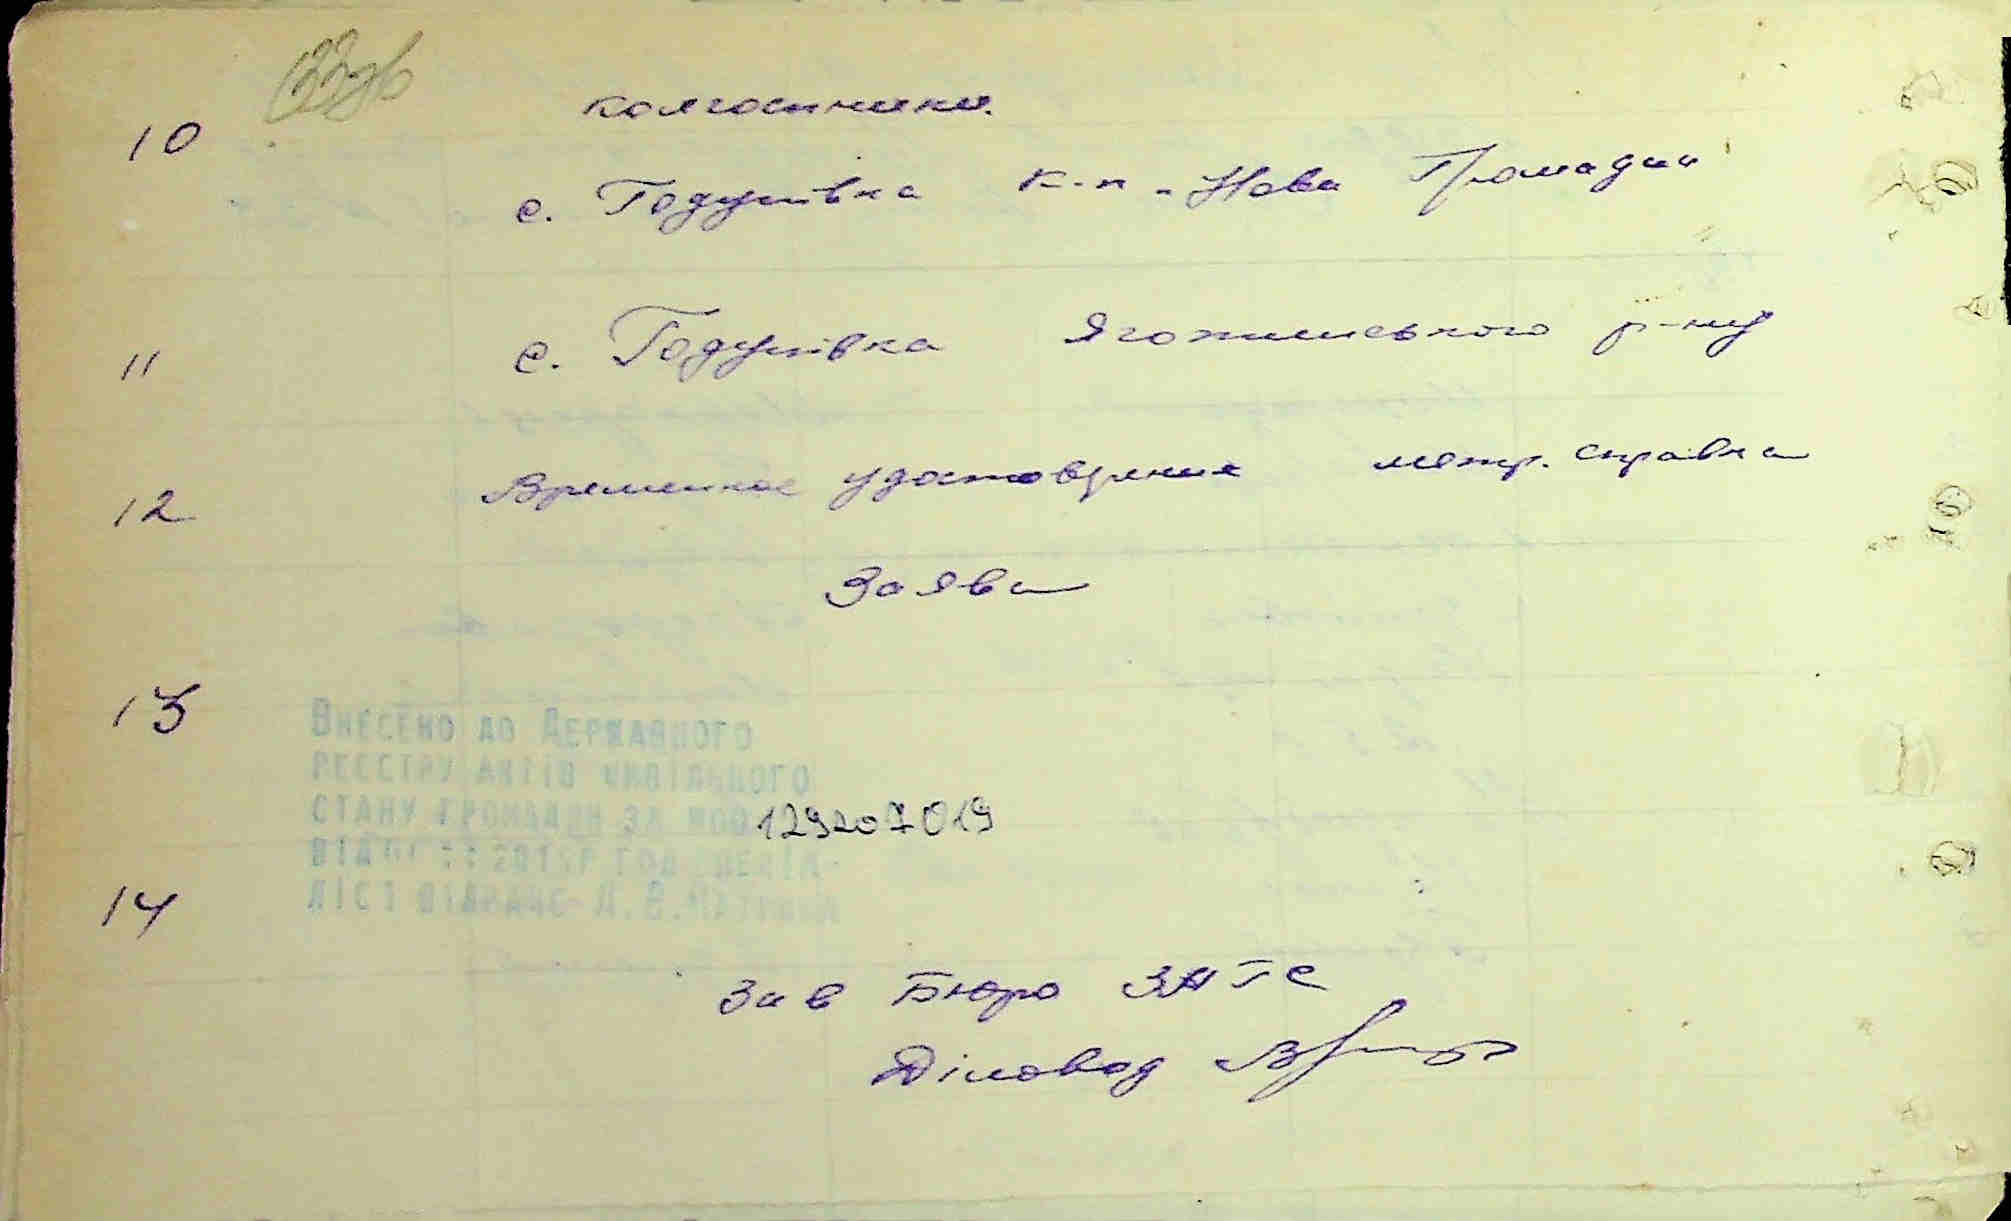 10 колгоспники.
с. Годунівка к-п "Нова Громада"
11 с. Годунівка Яготинського р-ну
12 Временное удостоверение метр. справка
Заява
13
Внесено до Державного
реєстру актів цивільного
стану громадян за
129207019
14
Зав Бюро ЗАГС
Діловод